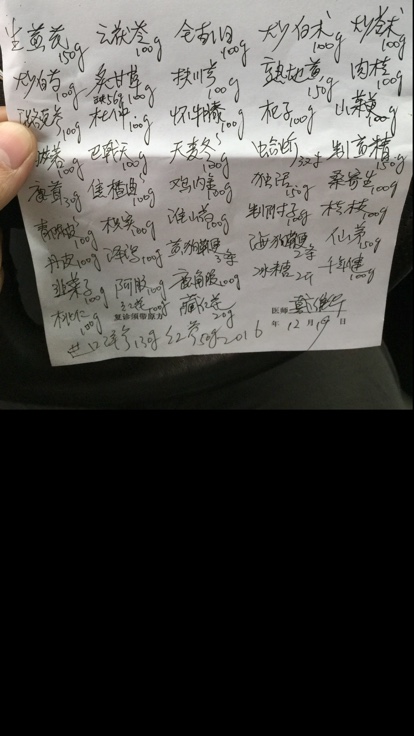 生黄芪150g 云茯苓100g 全当归100g 炒白术100g 炒苍术100g
炒白芍100g 炙甘草100g 川芎100g 熟地黄150g 肉桂100g
100g 杜仲100g 怀牛膝100g 杞子100g 山萸100g
巴戟天100g 天麦冬100g 制黄精150g
鹿茸30g 焦楂曲100g 鸡内金100g 独活50g 桑寄生100g
青陈皮100g 枳实100g 淮山药100g 制附子100g 桂枝100g
丹皮100g 泽泻100g 黄狗鞭3条 海狗鞭2条 仙茅50g
韭菜子100g 阿胶100g 鹿角胶100g 冰糖2斤 千年健100g
桃仁100g 红花100g 藏红花20g
复诊须带原方 医师
西洋参130g 红参50g 2016年12月19日